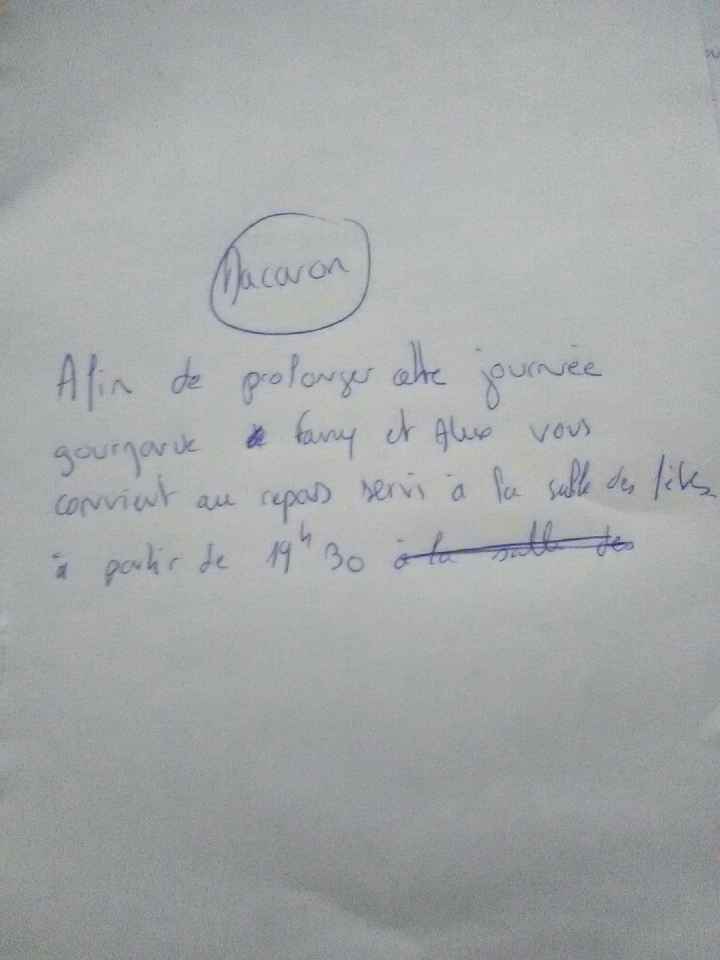 Macaron
Afin de prolonger cette journée
gourmande Fanny et Alex vous
convient au repas servis à la salle des fêtes
à partir de 19h30 à la salle des